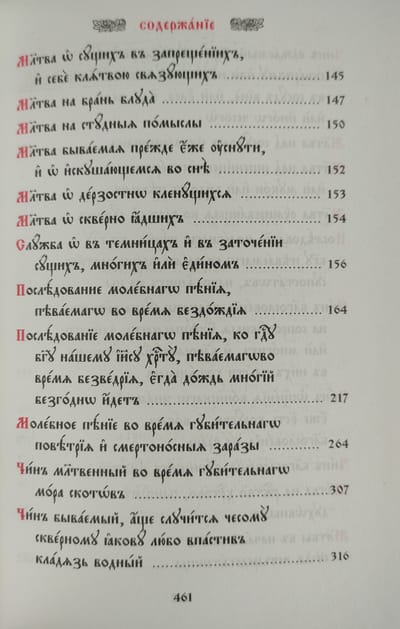 СОДЕРЖА́НЇЕ
Мл҃тва ѡ҆ сꙋ́щихъ въ запреще́нїихъ,
и҆ себѐ клѧ́твою свѧзꙋ́ющихъ 145
Мл҃тва на бра́нь блꙋда̀ 147
Мл҃тва на стꙋ́дныѧ по́мыслы 150
Мл҃тва быва́емаѧ пре́жде є҆́же ᲂу҆снꙋ́ти,
и҆ ѡ҆ и҆скꙋша́ющемсѧ во снѣ̀ 152
Мл҃тва ѡ҆ де́рзостнѡ кленꙋ́щихсѧ 153
Мл҃тва ѡ҆ скве́рно ꙗ҆́дшихъ 154
Слꙋ́жба ѡ҆ въ темни́цахъ и҆ въ заточе́нїи
сꙋ́щихъ, мно́гихъ и҆лѝ є҆ди́номъ 156
Послѣ́дованїе моле́бнагѡ пѣ́нїѧ,
пѣва́емагѡ во вре́мѧ бездо́ждїѧ 164
Послѣ́дованїе моле́бнагѡ пѣ́нїѧ, ко гдⷭ҇ꙋ
бг҃ꙋ на́шемꙋ і҆и҃сꙋ хрⷭ҇тꙋ̀, пѣва́емагѡво
вре́мѧ безве́дрїѧ, є҆гда̀ до́ждь мно́гїй
безго́днѡ и҆́детъ 217
Моле́бное пѣ́нїе во вре́мѧ гꙋби́тельнагѡ
повѣ́трїѧ и҆ смертоно́сныѧ зара́зы 264
Чи́нъ мл҃твенный во вре́мѧ гꙋби́тельнагѡ
мо́ра скотѡ́въ 307
Чи́нъ быва́емый, а҆́ще слꙋчи́тсѧ чесомꙋ̀
скве́рномꙋ ꙗ҆ковꙋ̀ лю́бо впа́стивъ
кла́дѧзь во́дный 316
461